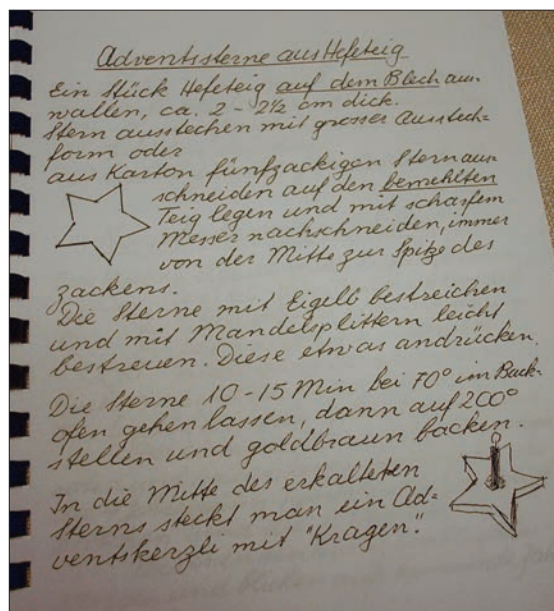 Adventssterne aus Hefeteig
Ein Stück Hefeteig auf dem Blech aus-
wallen, ca. 2 - 2½ cm dick.
Stern ausstechen mit grosser Ausstech-
form oder
aus Karton fünfzackigen Stern aus-
schneiden auf den bemehlten
Teig legen und mit scharfem
Messer nachschneiden, immer
von der Mitte zur Spitze des
zackens.
Die Sterne mit Eigelb bestreichen
und mit Mandelsplittern leicht
bestreuen. Diese etwas andrücken.
Die Sterne 10-15 Min bei 70° im Back-
ofen gehen lassen, dann auf 200°
stellen und goldbraun backen.
In die Mitte des erkalteten
Sterns steckt man ein Ad-
ventskerzli mit "Kragen".